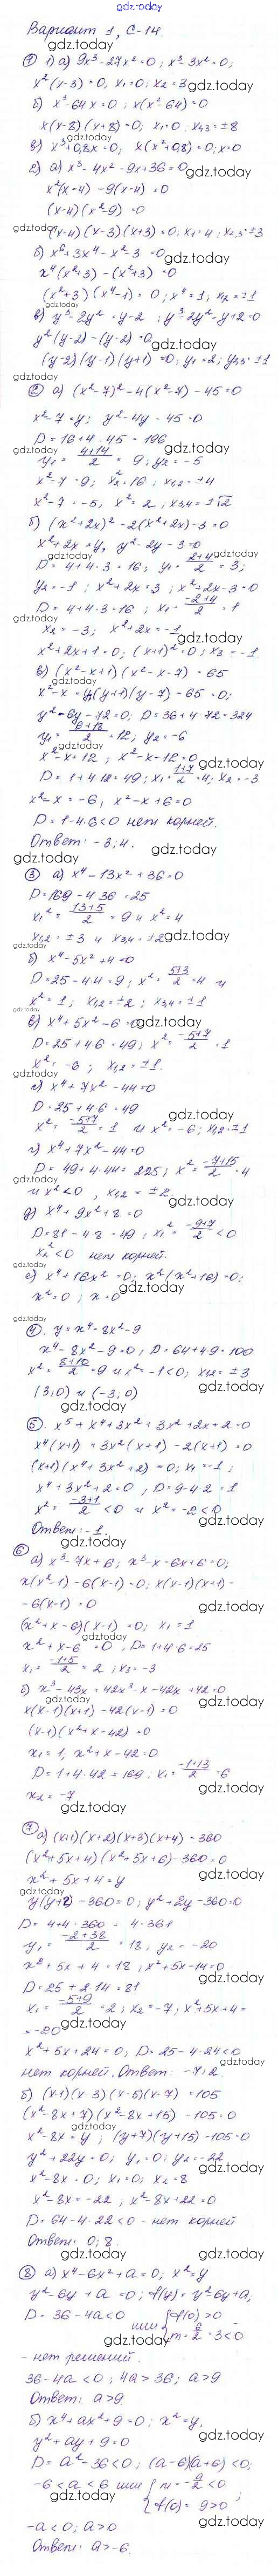 gdz.today
Вариант 1, С-14.
① 1) а) 9x³-27x²=0; x³-3x²=0;
x²(x-3)=0; x₁=0; x₂=3
б) x³-64x=0; x(x²-64)=0
x(x-8)(x+8)=0; x₁=0; x₂,₃=±8
в) x³+0,8x=0; x(x²+0,8)=0; x=0
2) а) x³-4x²-9x+36=0
x²(x-4)-9(x-4)=0
(x-4)(x²-9)=0
(x-4)(x-3)(x+3)=0; x₁=4; x₂,₃=±3
б) x⁶+3x⁴-x²-3=0
x⁴(x²+3)-(x²+3)=0
(x²+3)(x⁴-1)=0; x⁴=1; x₁,₂=±1
в) y³-2y²=y-2; y³-2y²-y+2=0
y²(y-2)-(y-2)=0
(y-2)(y-1)(y+1)=0; y₁=2; y₂,₃=±1
② а) (x²-7)²-4(x²-7)-45=0
x²-7=y; y²-4y-45=0
D=16+4·45=196
y₁=(4+14)/2=9; y₂=-5
x²-7=9; x²=16; x₁,₂=±4
x²-7=-5; x²=2; x₃,₄=±√2
б) (x²+2x)²-2(x²+2x)-3=0
x²+2x=y; y²-2y-3=0
D=4+4·3=16; y₁=(2+4)/2=3;
y₂=-1; x²+2x=3; x²+2x-3=0
D=4+4·3=16; x₁=(-2+4)/2=1
x₂=-3; x²+2x=-1
x²+2x+1=0; (x+1)²=0; x₃=-1
в) (x²-x+1)(x²-x-7)=65
x²-x=y; (y+1)(y-7)-65=0;
y²-6y-72=0; D=36+4·72=324
y₁=(6+18)/2=12; y₂=-6
x²-x=12; x²-x-12=0
D=1+4·12=49; x₁=(1+7)/2=4; x₂=-3
x²-x=-6; x²-x+6=0
D=1-4·6<0 нет корней.
Ответ: -3; 4.
③ а) x⁴-13x²+36=0
D=169-4·36=25
x₁²=(13+5)/2=9 и x²=4
x₁,₂=±3 и x₃,₄=±2
б) x⁴-5x²+4=0
D=25-4·4=9; x²=(5+3)/2=4 и
x²=1; x₁,₂=±2; x₃,₄=±1
в) x⁴+5x²-6=0
D=25+4·6=49; x²=(-5+7)/2=1
x²=-6; x₁,₂=±1.
г) x⁴+7x²-44=0
D=25+4·6=49
x²=(-5+7)/2=1 и x²=-6; x₁,₂=±1
г) x⁴+7x²-44=0
D=49+4·44=225; x²=(-7+15)/2=4
и x²<0, x₁,₂=±2.
д) x⁴+9x²+8=0
D=81-4·8=49; x₁²=(-9+7)/2<0
x₂²<0 нет корней.
е) x⁴+16x²=0; x²(x²+16)=0;
x²=0; x=0
④. y=x⁴-8x²-9
x⁴-8x²-9=0; D=64+4·9=100
x²=(8+10)/2=9 и x²=-1<0; x₁,₂=±3
(3;0) и (-3;0)
⑤. x⁵+x⁴+3x³+3x²+2x+2=0
x⁴(x+1)+3x²(x+1)-2(x+1)=0
(x+1)(x⁴+3x²+2)=0; x₁=-1;
x⁴+3x²+2=0; D=9-4·2=1
x²=(-3+1)/2<0 и x²=-2<0
Ответ: -1.
⑥
а) x³-7x+6; x³-x-6x+6=0;
x(x²-1)-6(x-1)=0; x(x-1)(x+1)-
-6(x-1)=0
(x²+x-6)(x-1)=0; x₁=1
x²+x-6=0; D=1+4·6=25
x₁=(-1+5)/2=2; x₃=-3
б) x³-43x+42x³-x-42x+42=0
x(x-1)(x+1)-42(x-1)=0
(x-1)(x²+x-42)=0
x₁=1; x²+x-42=0
D=1+4·42=169; x₁=(-1+13)/2=6
x₂=-7
⑦
а) (x+1)(x+2)(x+3)(x+4)=360
(x²+5x+4)(x²+5x+6)-360=0
x²+5x+4=y
y(y+2)-360=0; y²+2y-360=0
D=4+4·360=4·361
y₁=(-2+38)/2=18; y₂=-20
x²+5x+4=18; x²+5x-14=0
D=25+2·14=81
x₁=(-5+9)/2=2; x₂=-7; x²+5x+4=
=-20
x²+5x+24=0; D=25-4·24<0
нет корней. Ответ: -7; 2.
б) (x-1)(x-3)(x-5)(x-7)=105
(x²-8x+7)(x²-8x+15)-105=0
x²-8x=y; (y+7)(y+15)-105=0
y²+22y=0; y₁=0; y₂=-22
x²-8x=0; x₁=0; x₂=8
x²-8x=-22; x²-8x+22=0
D=64-4·22<0 - нет корней
Ответ: 0; 8.
⑧ а) x⁴-6x²+a=0; x²=y
y²-6y+a=0; f(y)=y²-6y+a;
D=36-4a<0 или {f(0)>0
m=6/2=3<0
- нет решений.
36-4a<0; 4a>36; a>9
Ответ: a>9.
б) x⁴+ax²+9=0; x²=y,
y²+ay+9=0
D=a²-36<0; (a-6)(a+6)<0;
-6<a<6 или {m=-a/2<0
f(0)=9>0;
-a<0; a>0
Ответ: a>-6.